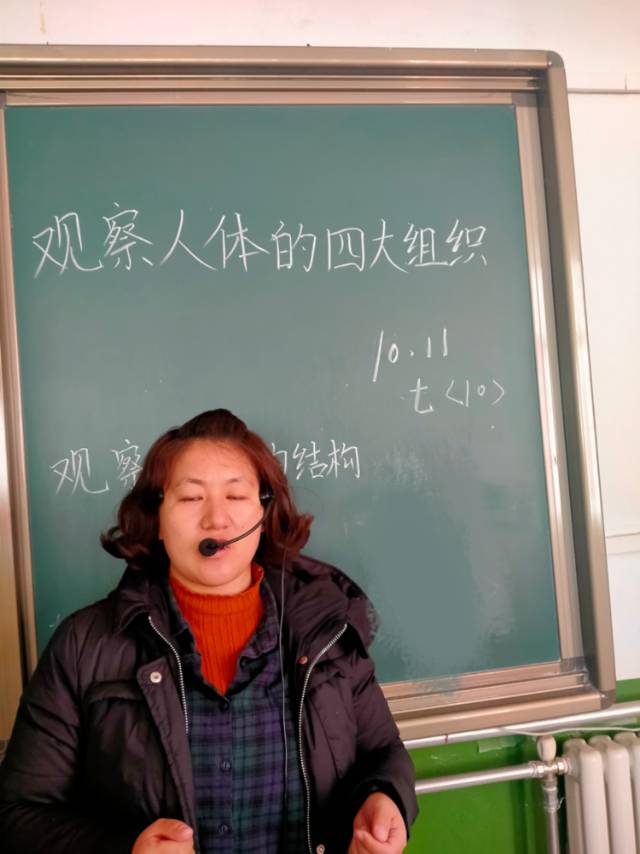 观察人体的四大组织
10.11
七<10>
观察 的结构